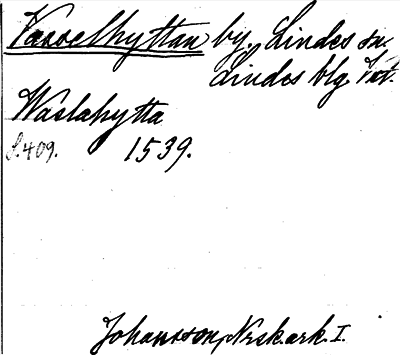 Vasselhyttan by, Lindes sn.
Lindes blg Vstm.
Waslahytta
S. 409. 1539.
Johansson, Nrsk.ark. I.